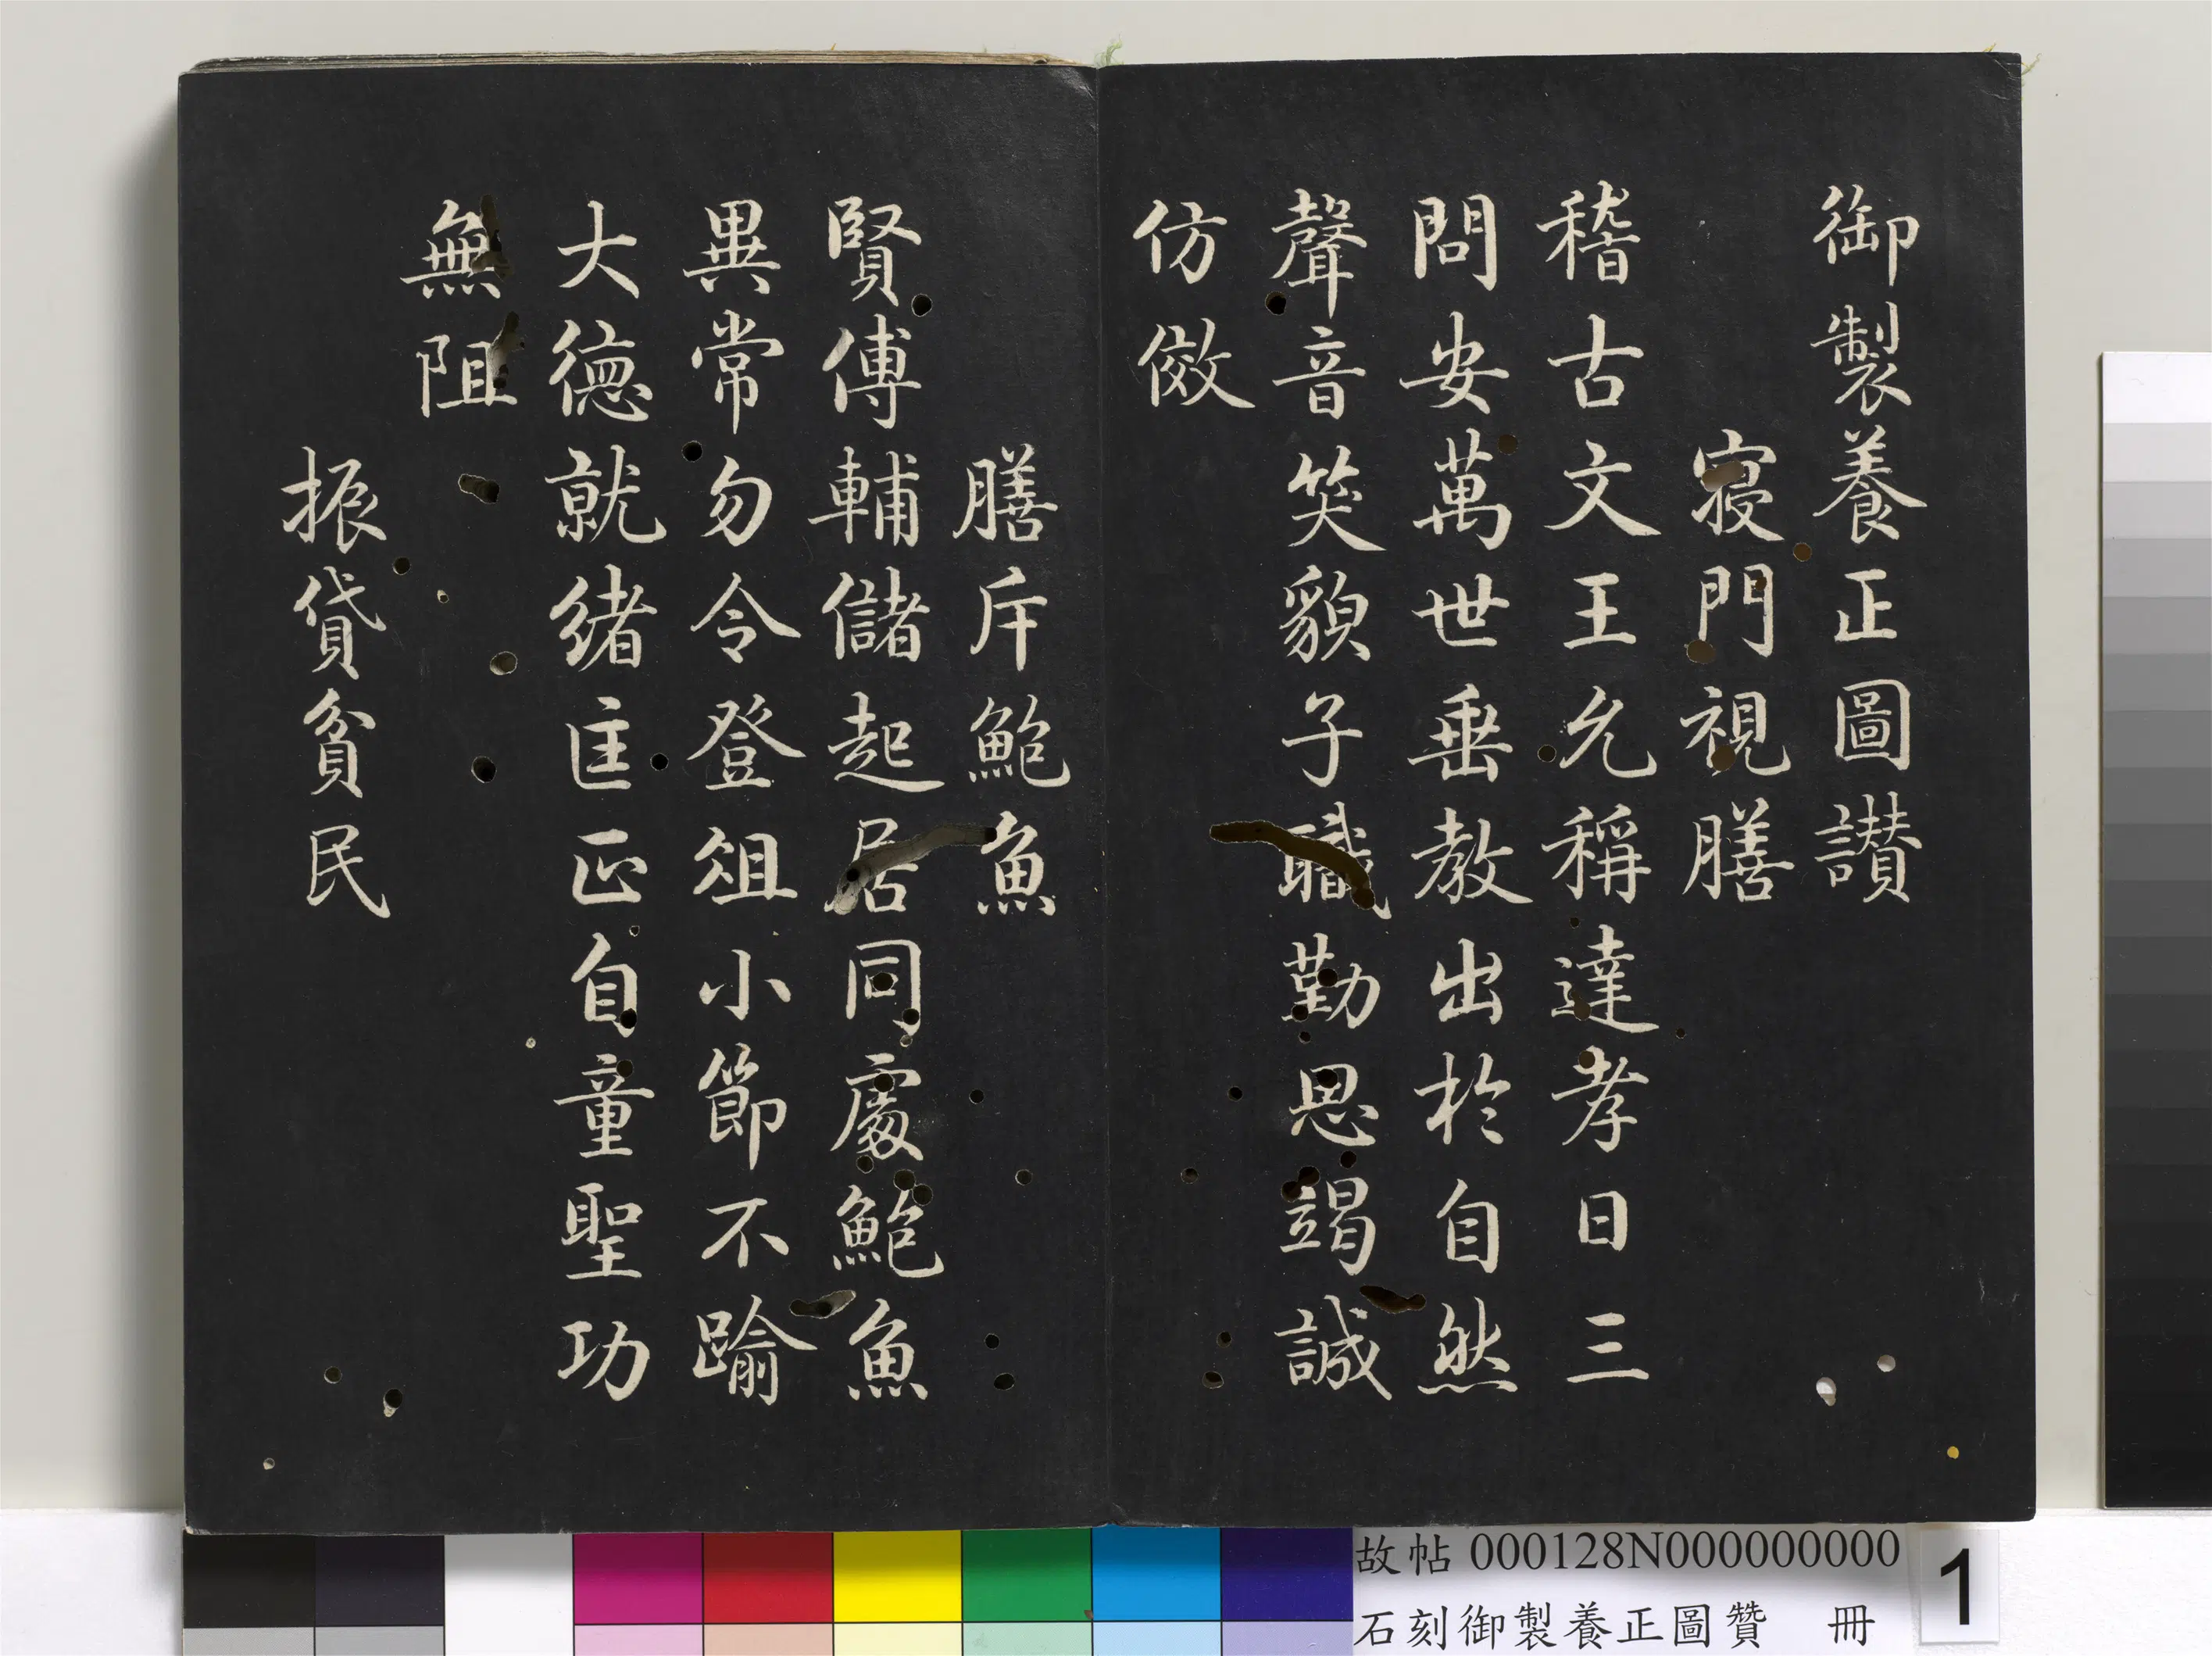 御製養正圖讃
寝門視膳
稽古文王允稱達孝日三
問安萬世垂教出於自然
聲音笑貌子職勤思竭誠
仿傚
膳斥鮑魚
賢傅輔儲起居同處鮑魚
異常勿令登俎小節不踰
大德就緒匡正自童聖功
無阻
振貸貧民
故帖 000128N000000000
石刻御製養正圖贊 冊
1